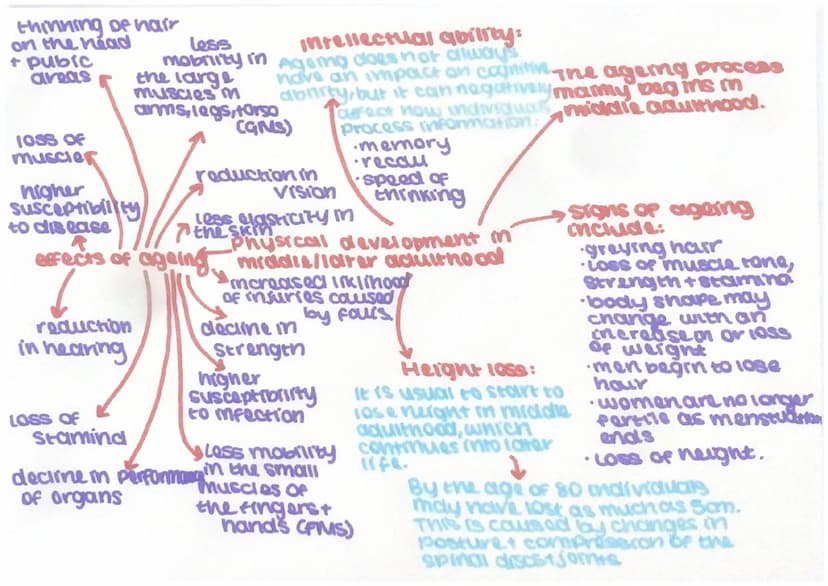 thinning of hair
on the head
+ pubic
areas
less
mobility in
the large
muscles in
arms, legs, torso
(GMS)
loss of
muscle
reduction in
vision
higher
susceptibility
to disease
less elasticity in
the skin
effects of ageing
Physical development in
middle/later adulthood
increased liklihood
of injuries caused
by falls
reduction
in hearing
decline in
strength
higher
susceptibility
to infection
loss of
stamina
decline in performance
of organs
less mobility
in the small
muscles of
the fingers +
hands (FMS)
Intellectual ability:
Ageing does not always
have an impact on cognitive
ability, but it can negatively
affect how individuals
process information:
·memory
·recall
·speed of
thinking
The ageing process
mainly begins in
middle adulthood.
Signs of ageing
include:
·greying hair
·Loss of muscle tone,
strength + stamina
·body shape may
change with an
increase in or loss
of weight
·men begin to lose
hair
·women are no longer
fertile as menstruation
ends
·Loss of height.
Height loss:
It is usual to start to
lose height in middle
adulthood, which
continues into later
life.
By the age of 80 individuals
may have lost as much as 5cm.
This is caused by changes in
posture + compression of the
spinal discs + joints